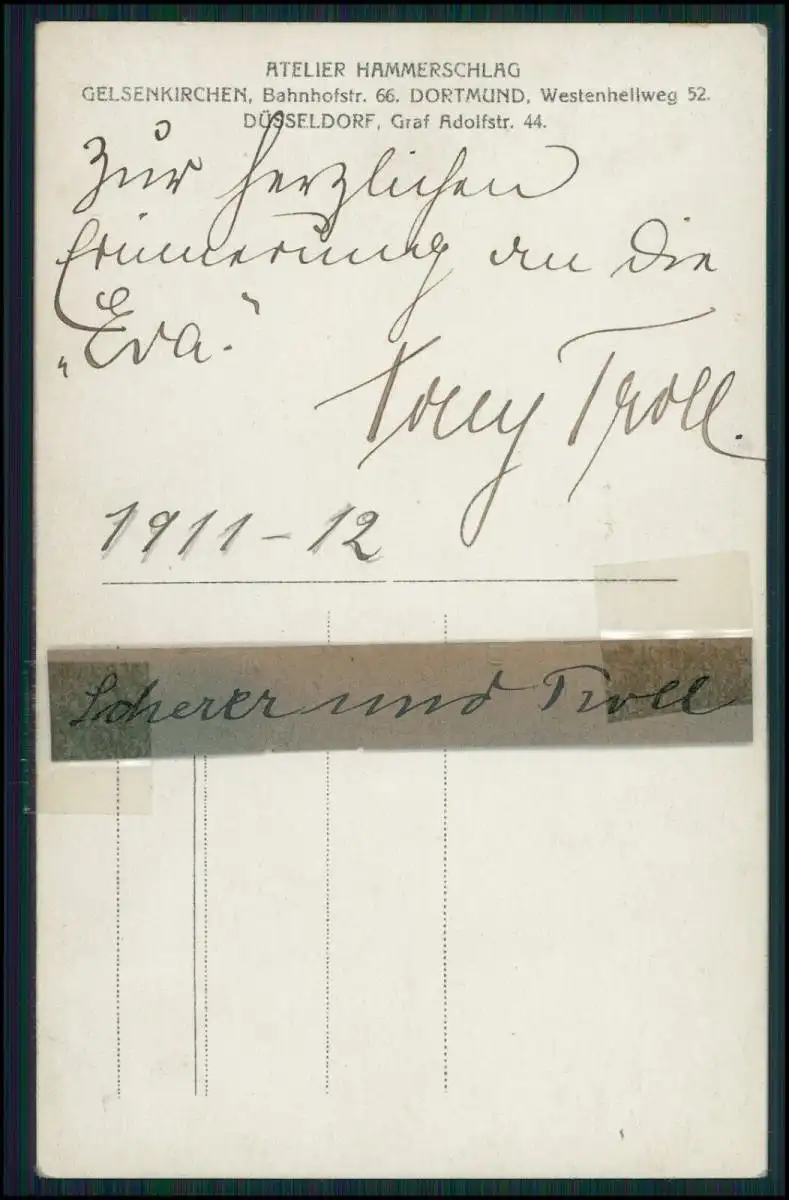 ATELIER HAMMERSCHLAG
GELSENKIRCHEN, Bahnhofstr. 66. DORTMUND, Westenhellweg 52.
DÜSSELDORF, Graf Adolfstr. 44.
Zur herzlichen
Erinnerung an die
„Eva.“
Tony Troll.
1911-12
Scherer und Troll